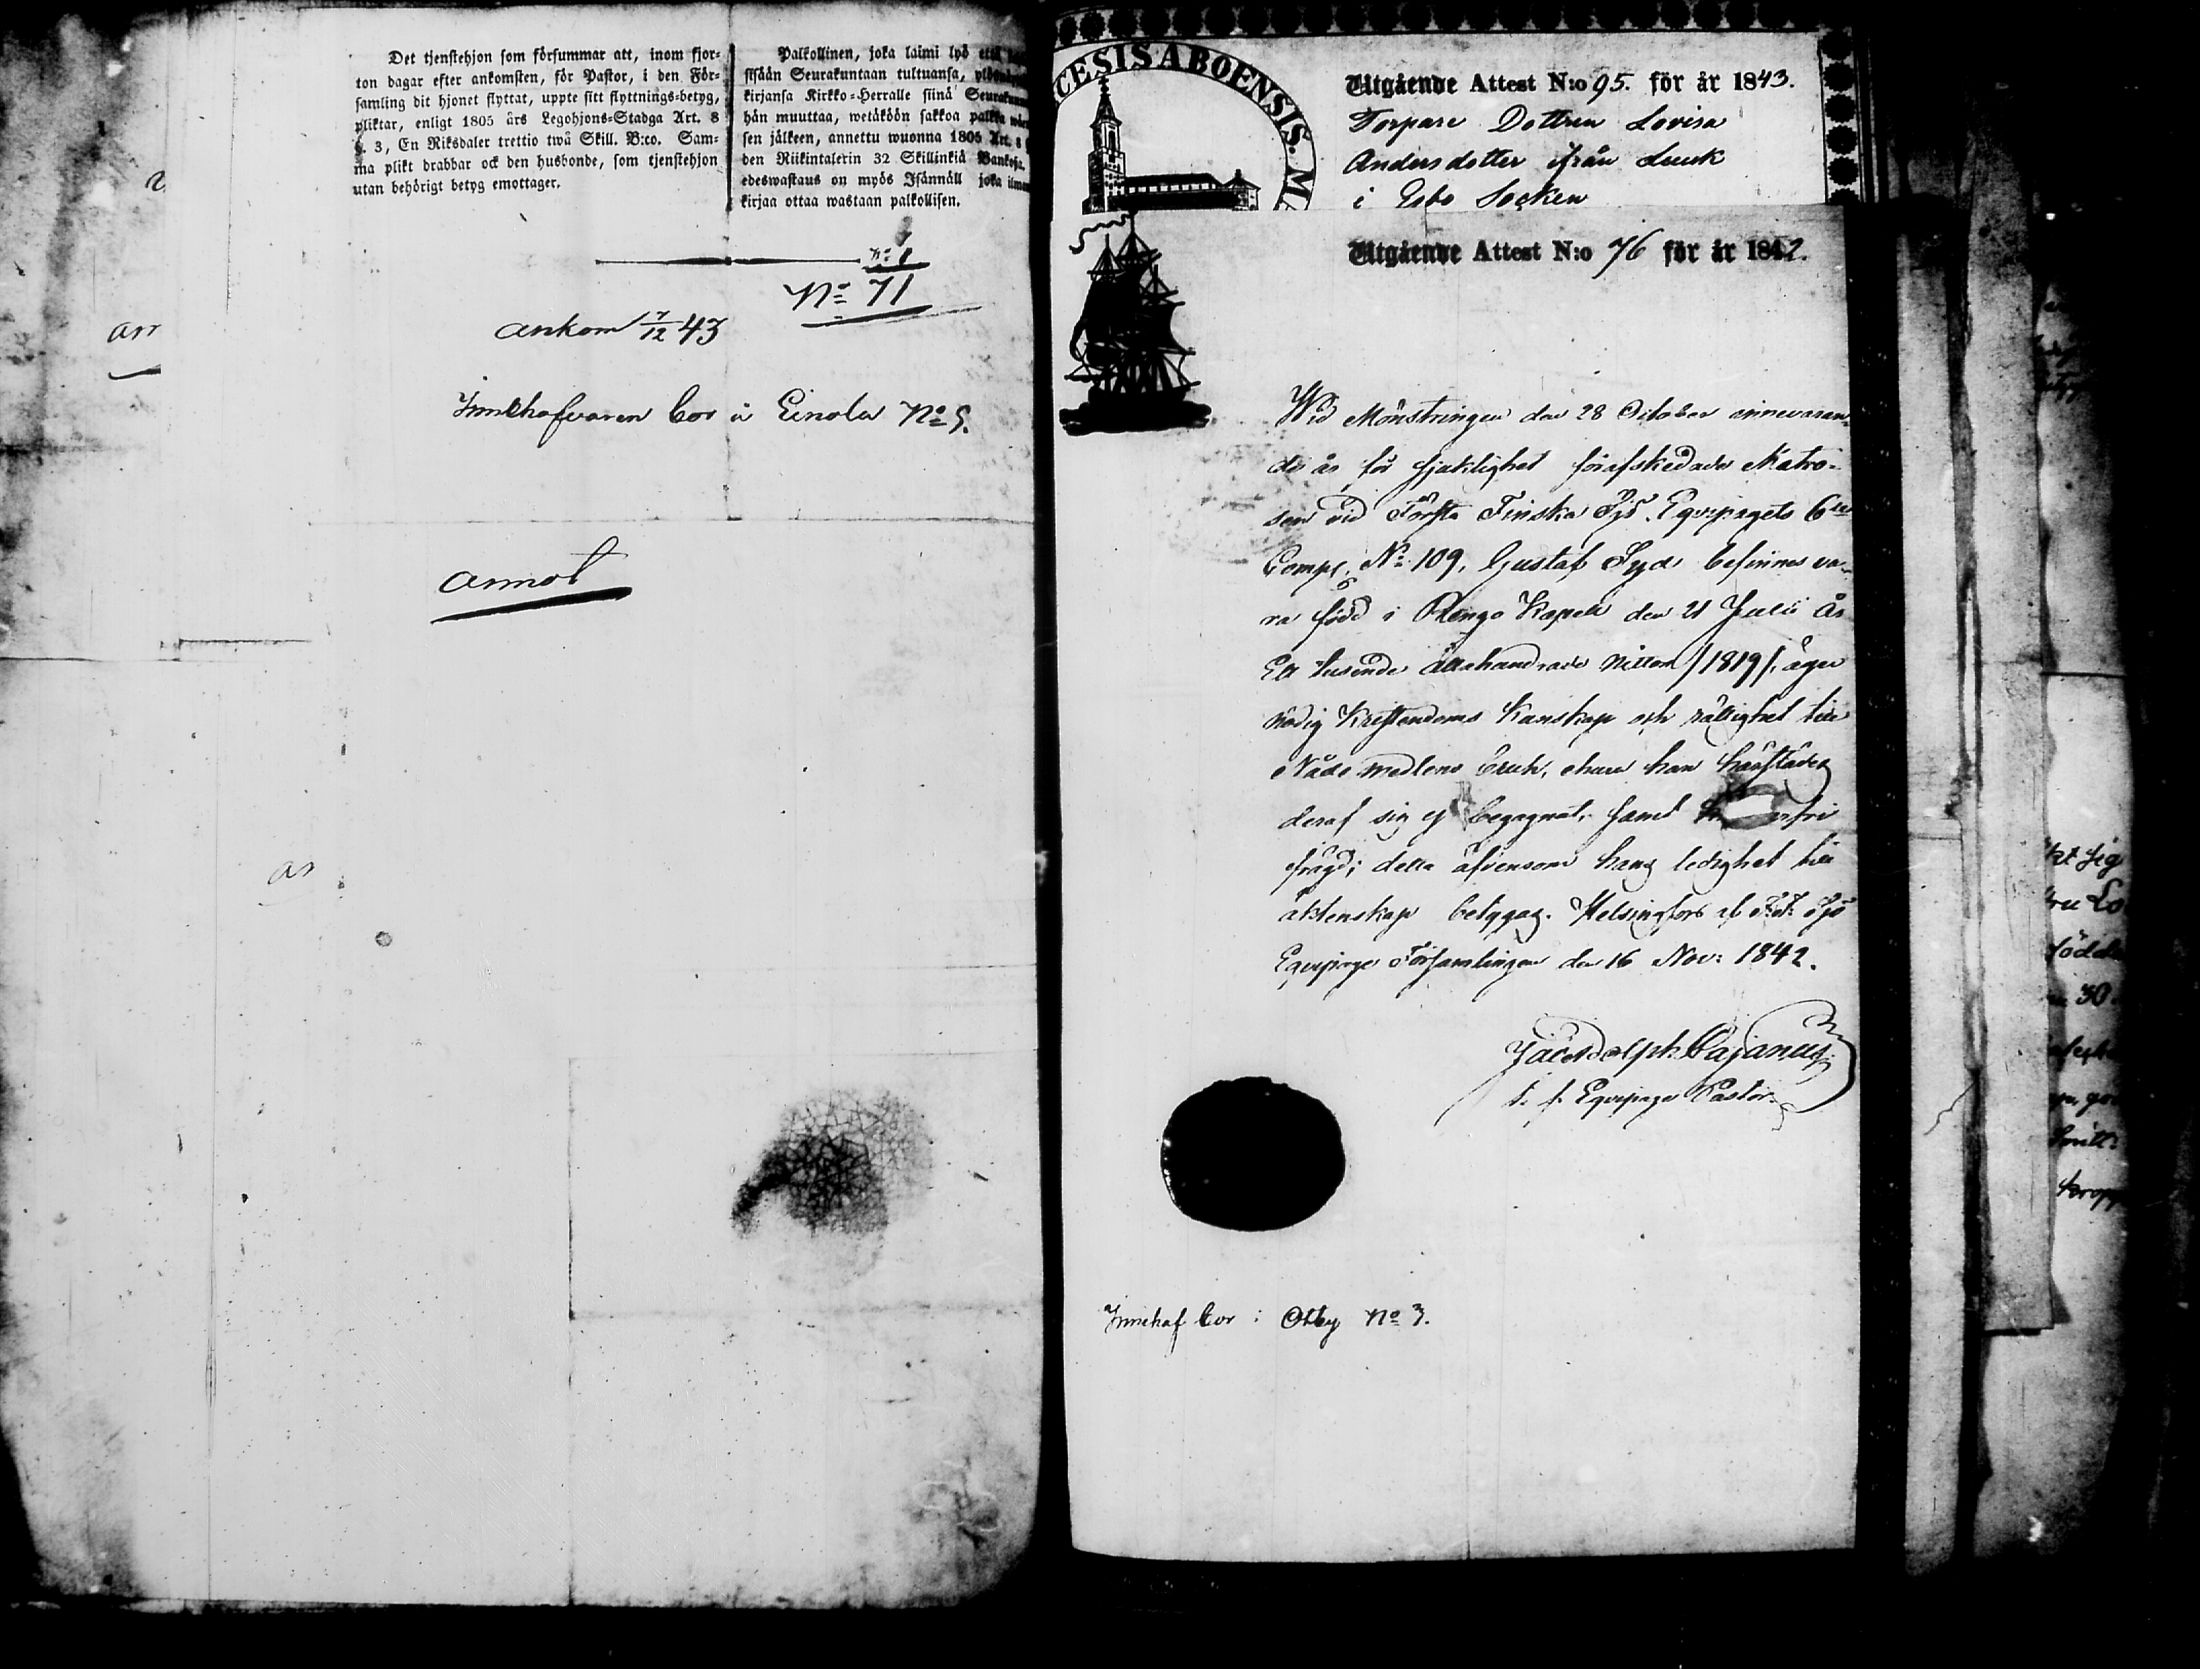 Det tjenstehjon som försummar att, inom fjor-
ton dagar efter ankomsten, för Pastor, i den För-
samling dit hjonet flyttat, uppte sitt flyttnings-betyg,
pliktar, enligt 1805 års Legohjons-Stadga Art. 8
§. 3, En Riksdaler trettio twå Skill. B:co. Sam-
ma plikt drabbar ock den husbonde, som tjenstehjon
utan behörigt betyg emottager.
Palkollinen, joka laimi lyö
sisään Seurakuntaan tultuansa,
kirjansa Kirkko-Herralle siinä
hän muuttaa, wetäköön sakkoa palkka
sen jälkeen, annettu wuonna 1805 Art. 8
den Riikintalerin 32 Skillinkiä Bankosa.
edeswastaus on myös Isännäll joka
kirjaa ottaa wastaan palkollisen.
No 71
ankom 7/12 43
Innehafvaren bor å Einola No 5.
annot
CESIS ABOENSIS. MA
Utgående Attest N:o 95. för år 1843.
Torpare Dottren Lovisa
Andersdotter ifrån Luuk
i Esbo Socken
Utgående Attest N:o 76 för år 1842.
Wid Mönstringen den 28 October innevaran-
de år för sjuklighet förafskedade Matro-
sen vid Första Finska Sjö-Equipagets 6te
Comp. No 109, Gustaf Syd befinnes va-
ra född i Rengo Kapell den 21 Julii År
Ett tusende Åttahundrade Nitton /1819/, äger
nödig Kristendoms Kunskap och rättighet till
Nådemedlens bruk, ehuru han härstädes
deraf sig ej begagnat, samt
frägd; detta äfvensom hans ledighet till
äktenskap betygas. Helsingfors af F:a F: Sjö
Equipage Församlingen den 16 Nov: 1842.
Jac Adolph Cajanus
t. f. Equipage Pastor.
Innehaf bor i Otby No 3.